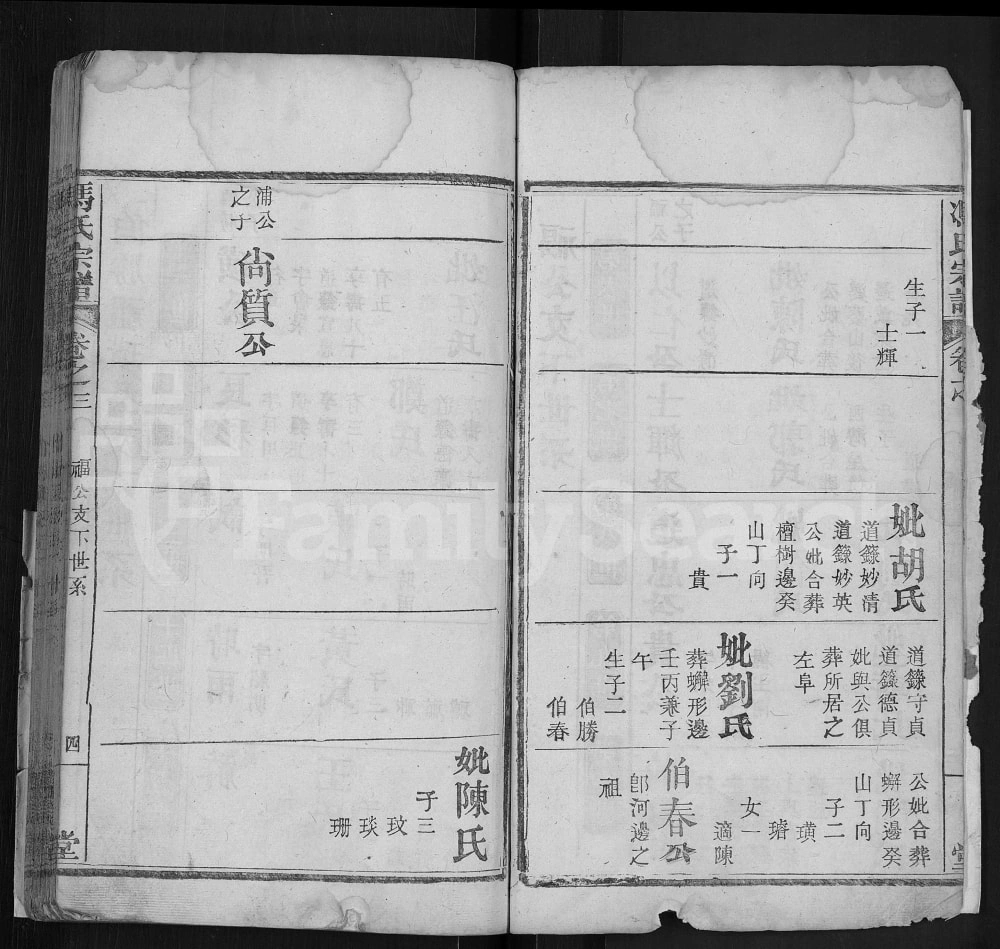 生子一
士輝
妣胡氏
道籙妙清
道籙妙英
公妣合葬
檀樹邊癸
山丁向
子一
貴
道籙守貞
道籙德貞
妣與公俱
葬所居之
左阜
妣劉氏
葬蠏形邊
壬丙兼子
午
生子二
伯勝
伯春
公妣合葬
蠏形邊癸
山丁向
子二
璜
璿
女一
適陳
伯春公
郎河邊之
祖
浦公
之子
尙質公
妣陳氏
子三
玟
琰
珊
馮氏宗譜
卷之三
福公支下世系
四
堂
FamilySearch